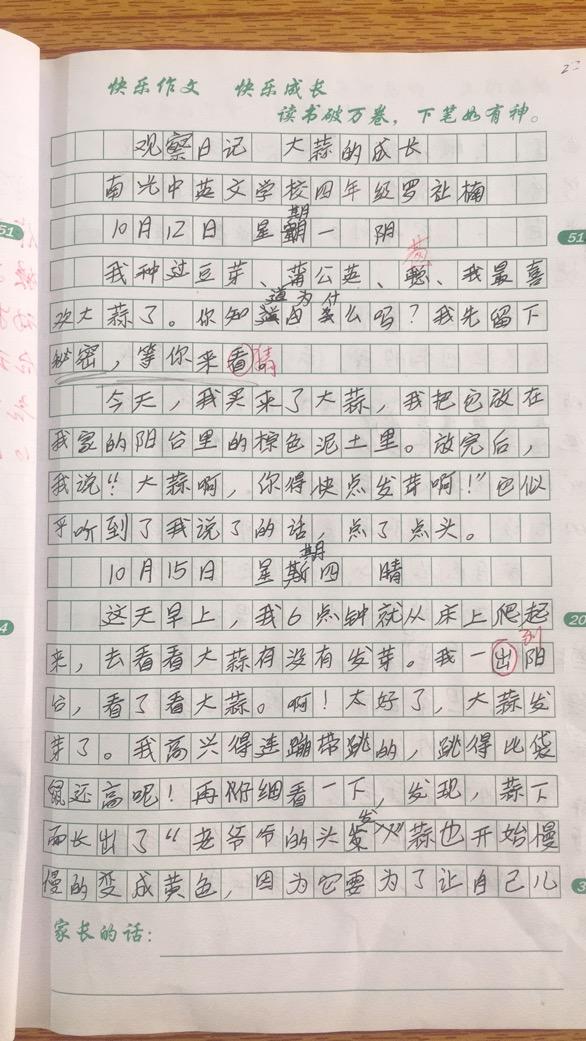 22
快乐作文 快乐成长
读书破万卷，下笔如有神。
观察日记 大蒜的成长
南光中英文学校四年级罗祉楠
10月12日 星期一 阴
我种过豆芽、蒲公英、葱、我最喜
欢大蒜了。你知道为什么吗？我先留下
秘密，等你来看猜。
今天，我买来了大蒜，我把它放在
我家的阳台里的棕色泥土里。放完后，
我说“大蒜啊，你得快点发芽啊！”它似
乎听到了我说了的话，点了点头。
10月15日 星期四 晴
这天早上，我6点钟就从床上爬起
来，去看看大蒜有没有发芽。我一出到阳
台，看了看大蒜。啊！太好了，大蒜发
芽了。我高兴得连蹦带跳的，跳得比袋
鼠还高呢！再仔细看一下，发现，蒜下
面长出了“老爷爷的头发”蒜也开始慢
慢的变成黄色，因为它要为了让自己儿
家长的话：
51
51
4
20
3